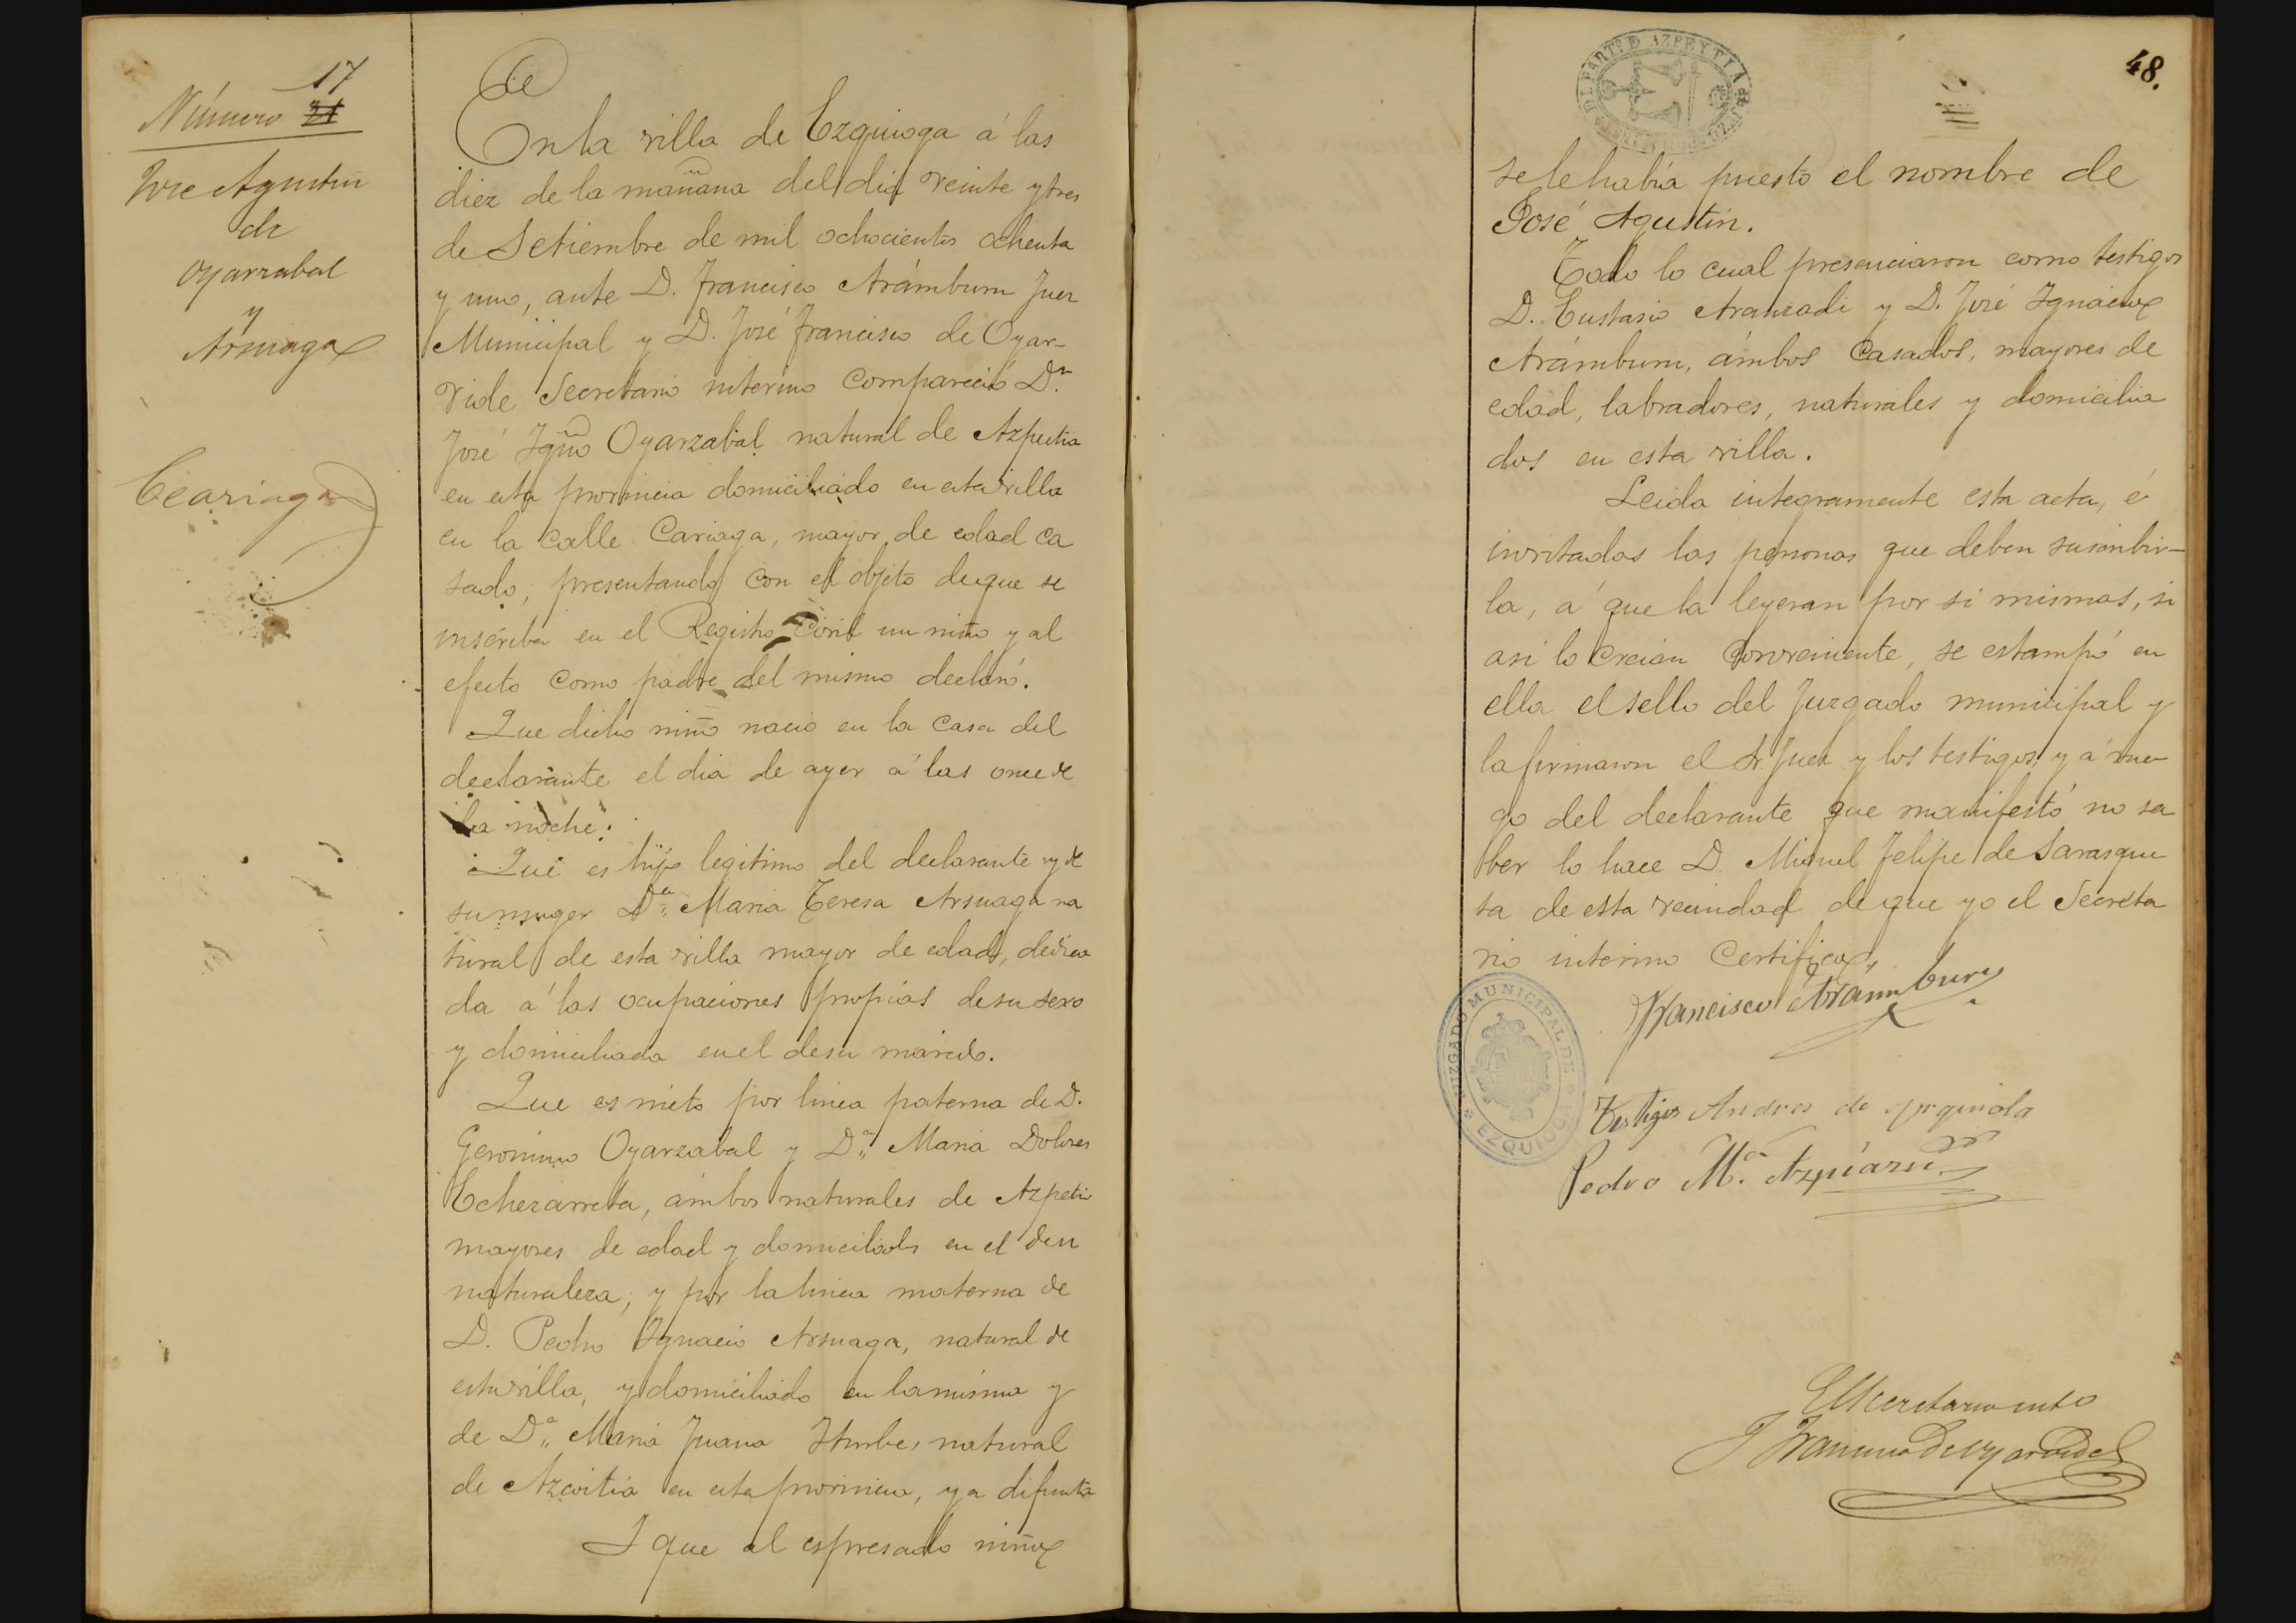 17
Número 21
José Agustin
de
Oyarzabal
y
Arsuaga
Ceariaga
En la villa de Ezquioga á las
diez de la mañana del dia veinte y tres
de Setiembre de mil ochocientos ochenta
y uno, ante D. Francisco Arámburu Juez
Municipal y D. José Francisco de Oyar-
vide Secretario interino compareció Dn.
José Igno Oyarzabal natural de Azpeitia
en esta provincia domiciliado en esta villa
en la calle Cariaga, mayor de edad ca
sado, presentando con el objeto de que se
inscriba en el Registro Civil un niño y al
efecto como padre del mismo declaró.
Que dicho niño nacio en la casa del
declarante el dia de ayer á las once de
la noche.
Que es hijo legitimo del declarante y de
su muger Da. Maria Teresa Arsuaga na
tural de esta villa mayor de edad, dedica
da á las ocupaciones propias de su sexo
y domiciliada en el de su marido.
Que es nieto por linea paterna de D.
Geronimo Oyarzabal y Da. Maria Dolores
Echezarreta, ámbos naturales de Azpeitia
mayores de edad y domiciliados en el de su
naturaleza, y por la linea materna de
D. Pedro Ignacio Arsuaga, natural de
esta villa, y domiciliado en la misma y
de Da. Maria Juana Iturbe, natural
de Azcoitia en esta provincia, ya difunta
I que al espresado niño
48.
DEL PARTo DE AZPEYTIA
se le habia puesto el nombre de
José Agustin.
Todo lo cual presenciaron como testigos
D. Eustasio Aranzadi y D. José Ignacio
Arámburu, ámbos casados, mayores de
edad, labradores, naturales y domicilia
dos en esta villa.
Leida integramente esta acta, é
invitadas las personas que deben suscribir-
la, á que la leyeran por si mismas, si
asi lo creian conveniente, se estampó en
ella el sello del Juzgado municipal y
la firmaron el Sr. Juez y los testigos y á rue
go del declarante que manifestó no sa
ber lo hace D. Miguel Felipe de Sarasque
ta de esta vecindad de que yo el Secreta
rio interino Certifico,
Francisco Aramburu
JUZGADO MUNICIPAL DE EZQUIOGA
Testigos Andres de
Pedro Ma.
El Secretario into
J Francisco de Oyarvide